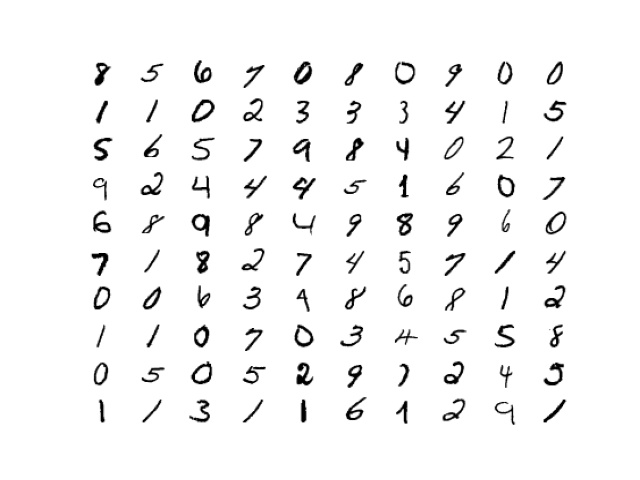 8 5 6 7 0 8 0 9 0 0
1 1 0 2 3 3 3 4 1 5
5 6 5 7 9 8 4 0 2 1
9 2 4 4 4 5 1 6 0 7
6 8 9 8 4 9 8 9 6 0
7 1 8 2 7 4 5 7 1 4
0 0 6 3 9 8 6 8 1 2
1 1 0 7 0 3 4 5 5 8
0 5 0 5 2 9 7 2 4 5
1 1 3 1 1 6 1 2 9 1